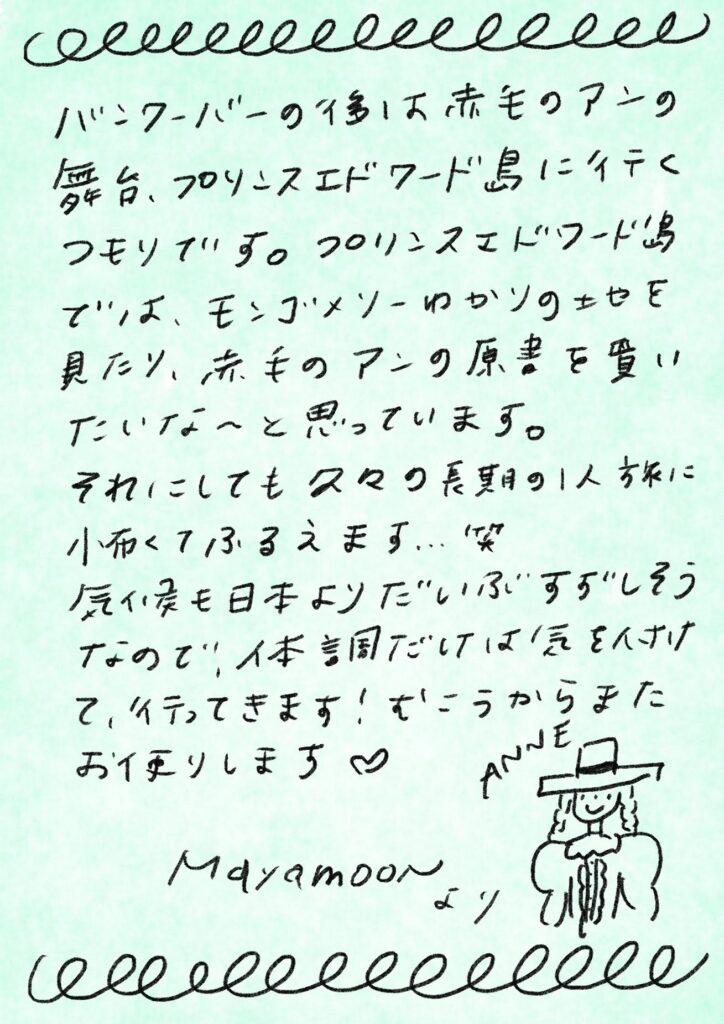 バンクーバーの後は赤毛のアンの
舞台、プリンスエドワード島に行く
つもりです。プリンスエドワード島
では、モンゴメリーゆかりの土地を
見たり、赤毛のアンの原書を買い
たいな〜と思っています。
それにしても久々の長期の1人旅に
怖くてふるえます…笑
気候も日本よりだいぶすずしそう
なので、体調だけは気を付け
て、行ってきます！むこうからまた
お便りします♡
ANNE
Mayamoon
より